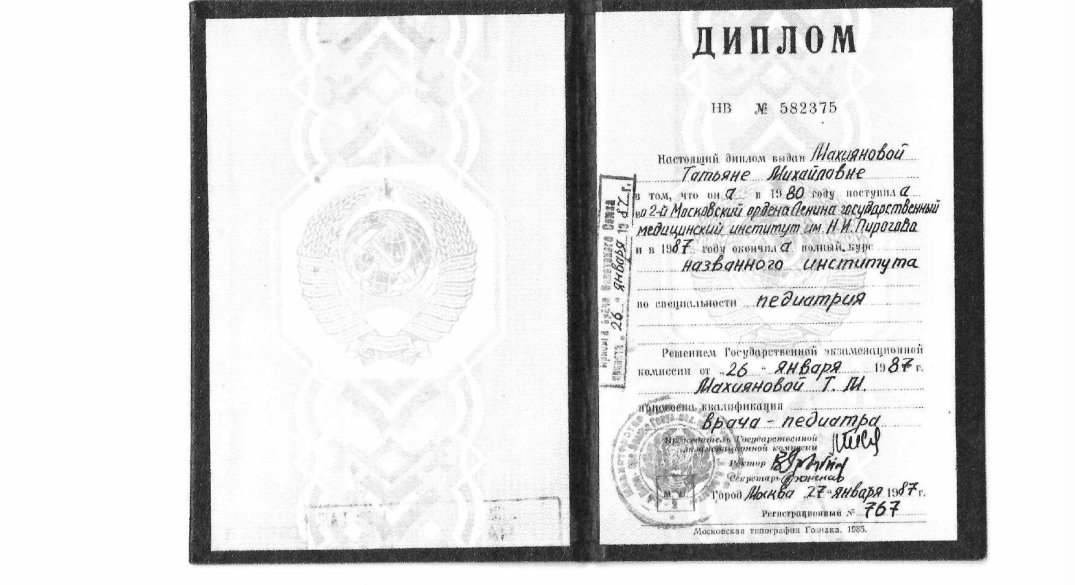 ДИПЛОМ
НВ № 582375
Настоящий диплом выдан Махияновой
Татьяне Михайловне
в том, что она в 1980 году поступила
во 2-й Московский ордена Ленина государственный
медицинский институт им. Н.И. Пирогова
и в 1987 году окончила полный курс
названного института
по специальности педиатрия
Решением Государственной экзаменационной
комиссии от „26" января 1987 г.
Махияновой Т. М.
присвоена квалификация
врача - педиатра
Председатель Государственной
экзаменационной комиссии
Ректор
Секретарь
Город Москва 27 " января 1987 г.
Регистрационный № 767
Московская типография Гознака. 1985.
Принята врача Советского Союза
„26 " января 1987 г.